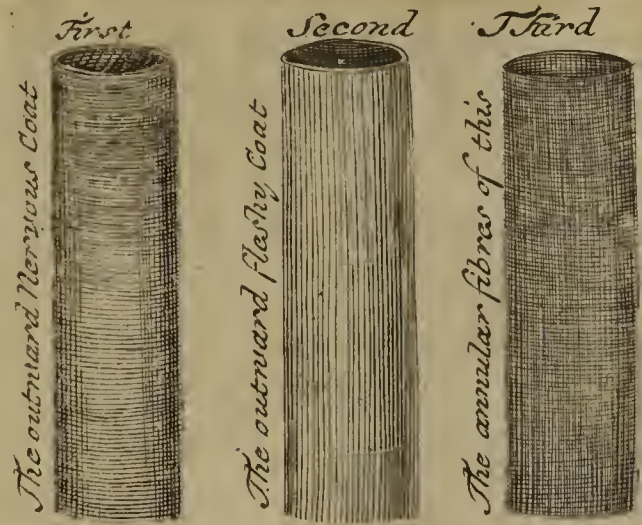 First
The outward Nervous Coat
Second
The outward fleshy Coat
Third
The annular fibres of this